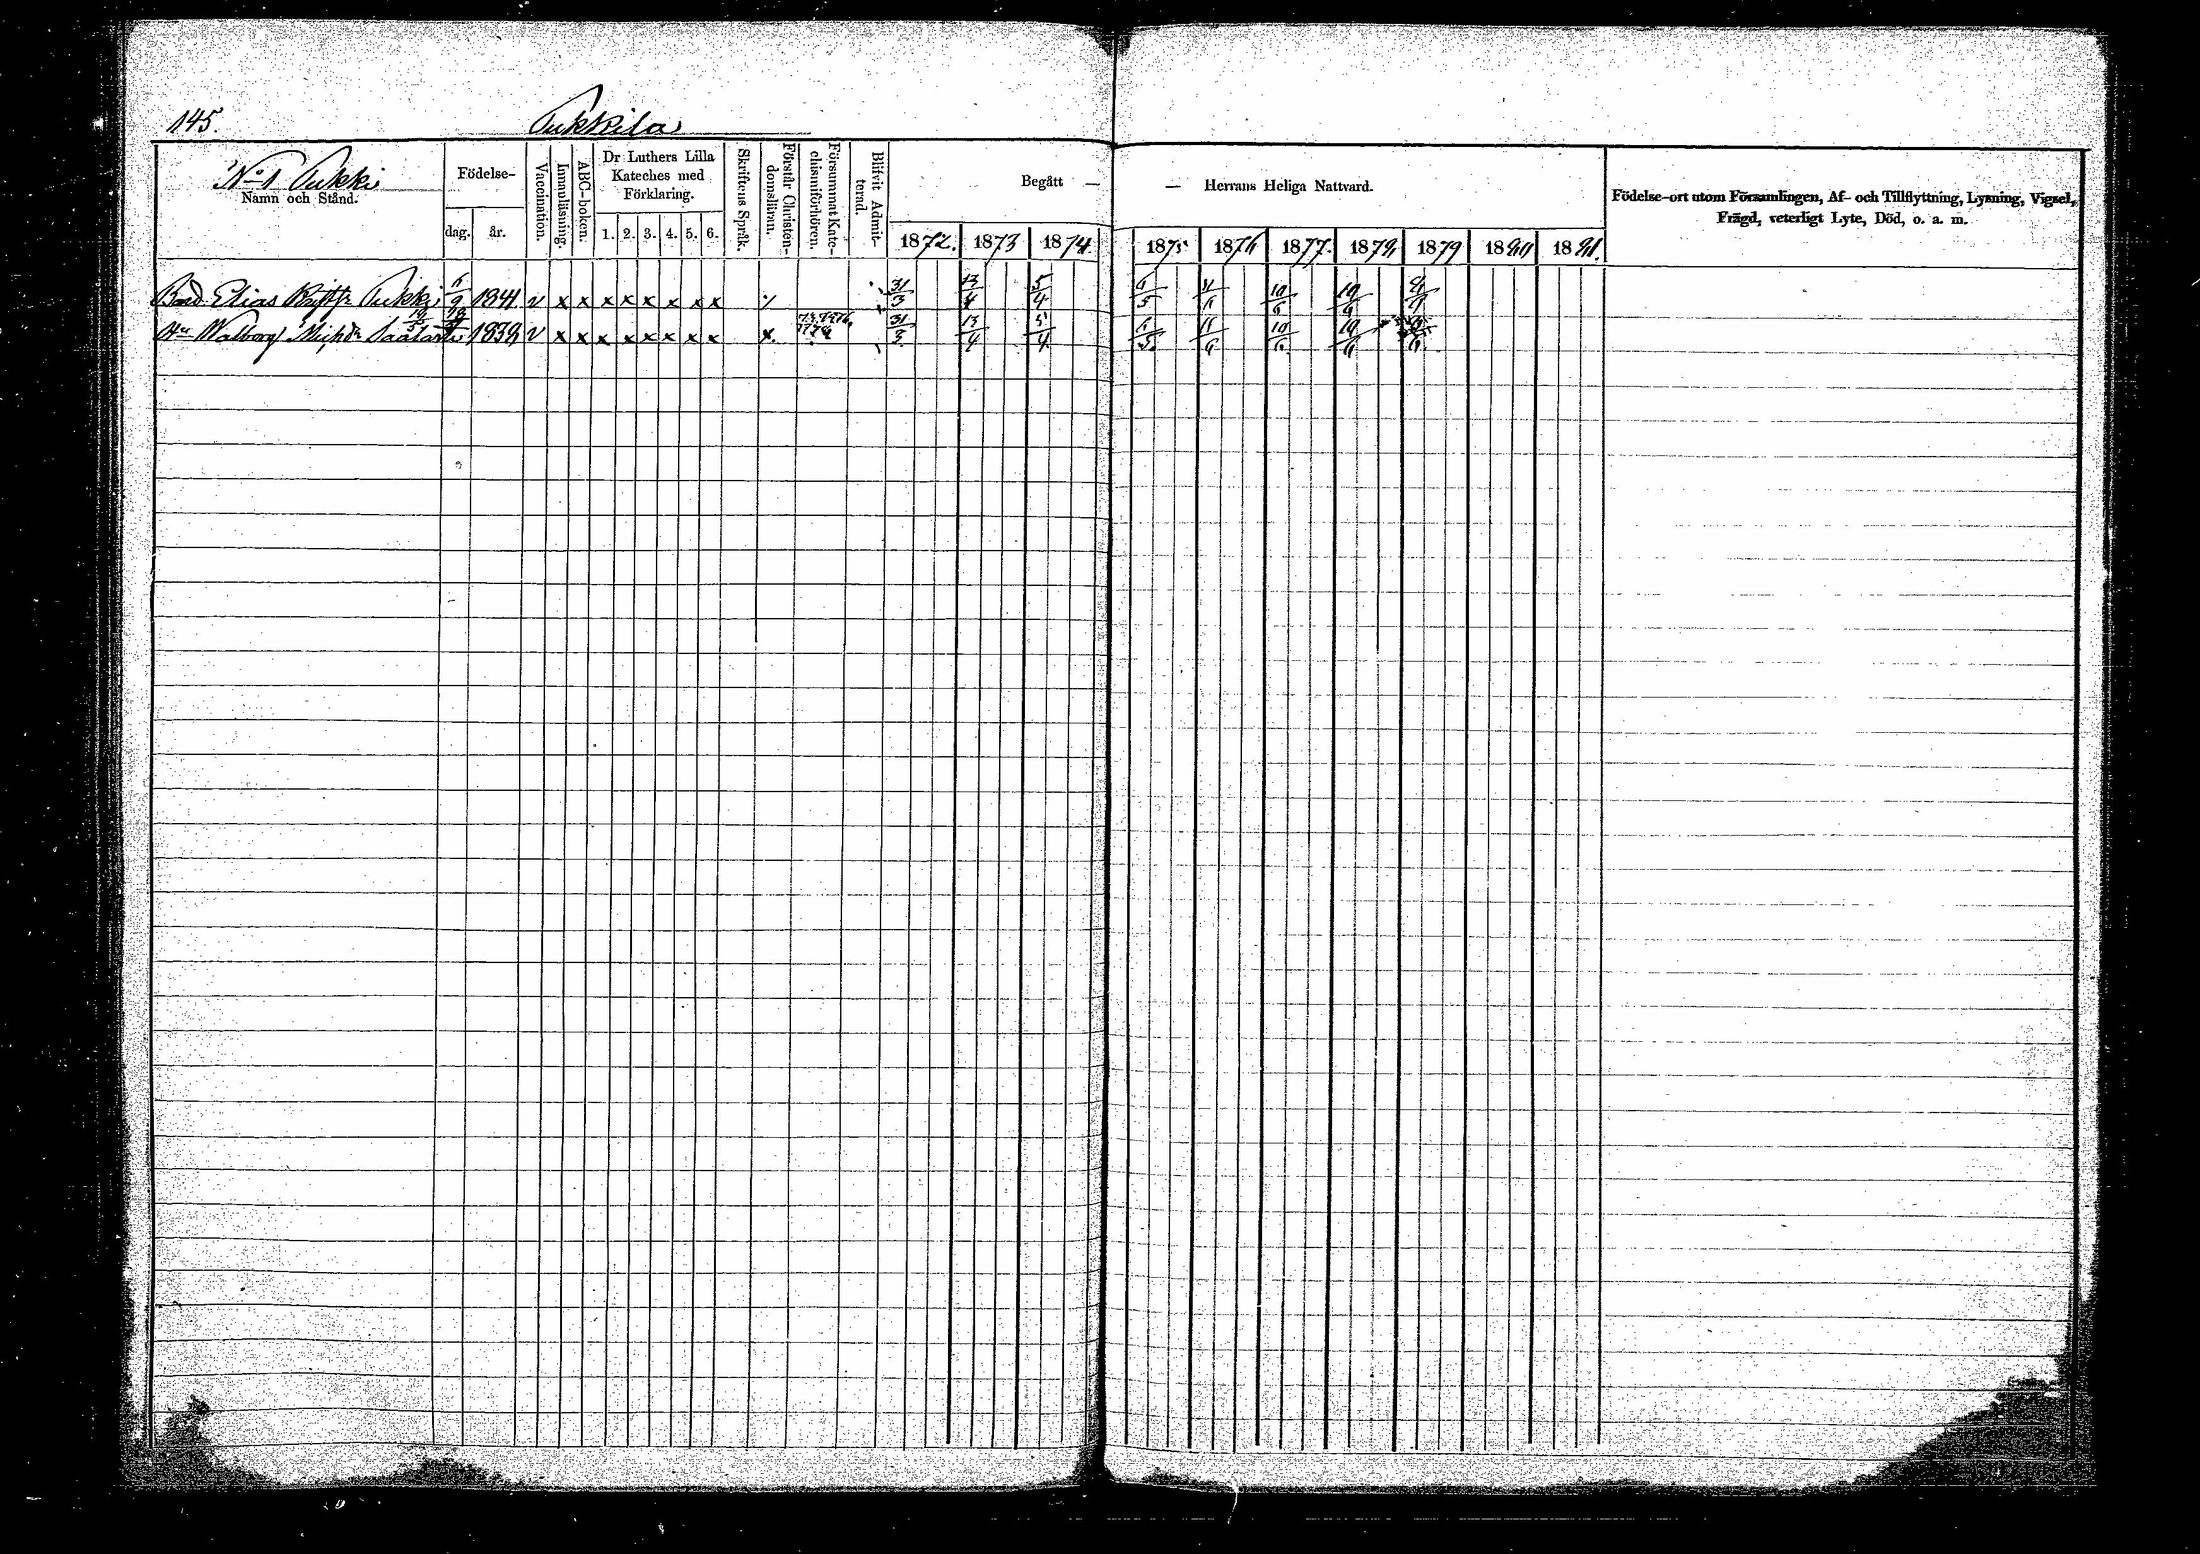 145. Tukkila
No 1 Tukki
Namn och Stånd.
Födelse-
dag. år.
Vaccination.
Innanläsning.
ABC-boken.
Dr Luthers Lilla
Kateches med
Förklaring.
1. 2. 3. 4. 5. 6.
Skriftens Språk.
Förstår Christen-
domsläran.
Försummat Kate-
chismiförhören.
Blifvit Admit-
terad.
Begått —
— Herrans Heliga Nattvard.
1872. 1873 1874. 1875 1876 1877. 1878 1879 1880 1881.
Födelse-ort utom Församlingen, Af- och Tillflyttning, Lysning, Vigsel,
Frägd, veterligt Lyte, Död, o. a. m.
Elias Tukki 1841 v x x x x x x x x 31/3 13/4 5/4 6/5 11/6 10/6 10/6
Walborg 1838 v x x x x x x x x x. 31/3 13/4 5/4 6/5 11/6 10/6 10/6